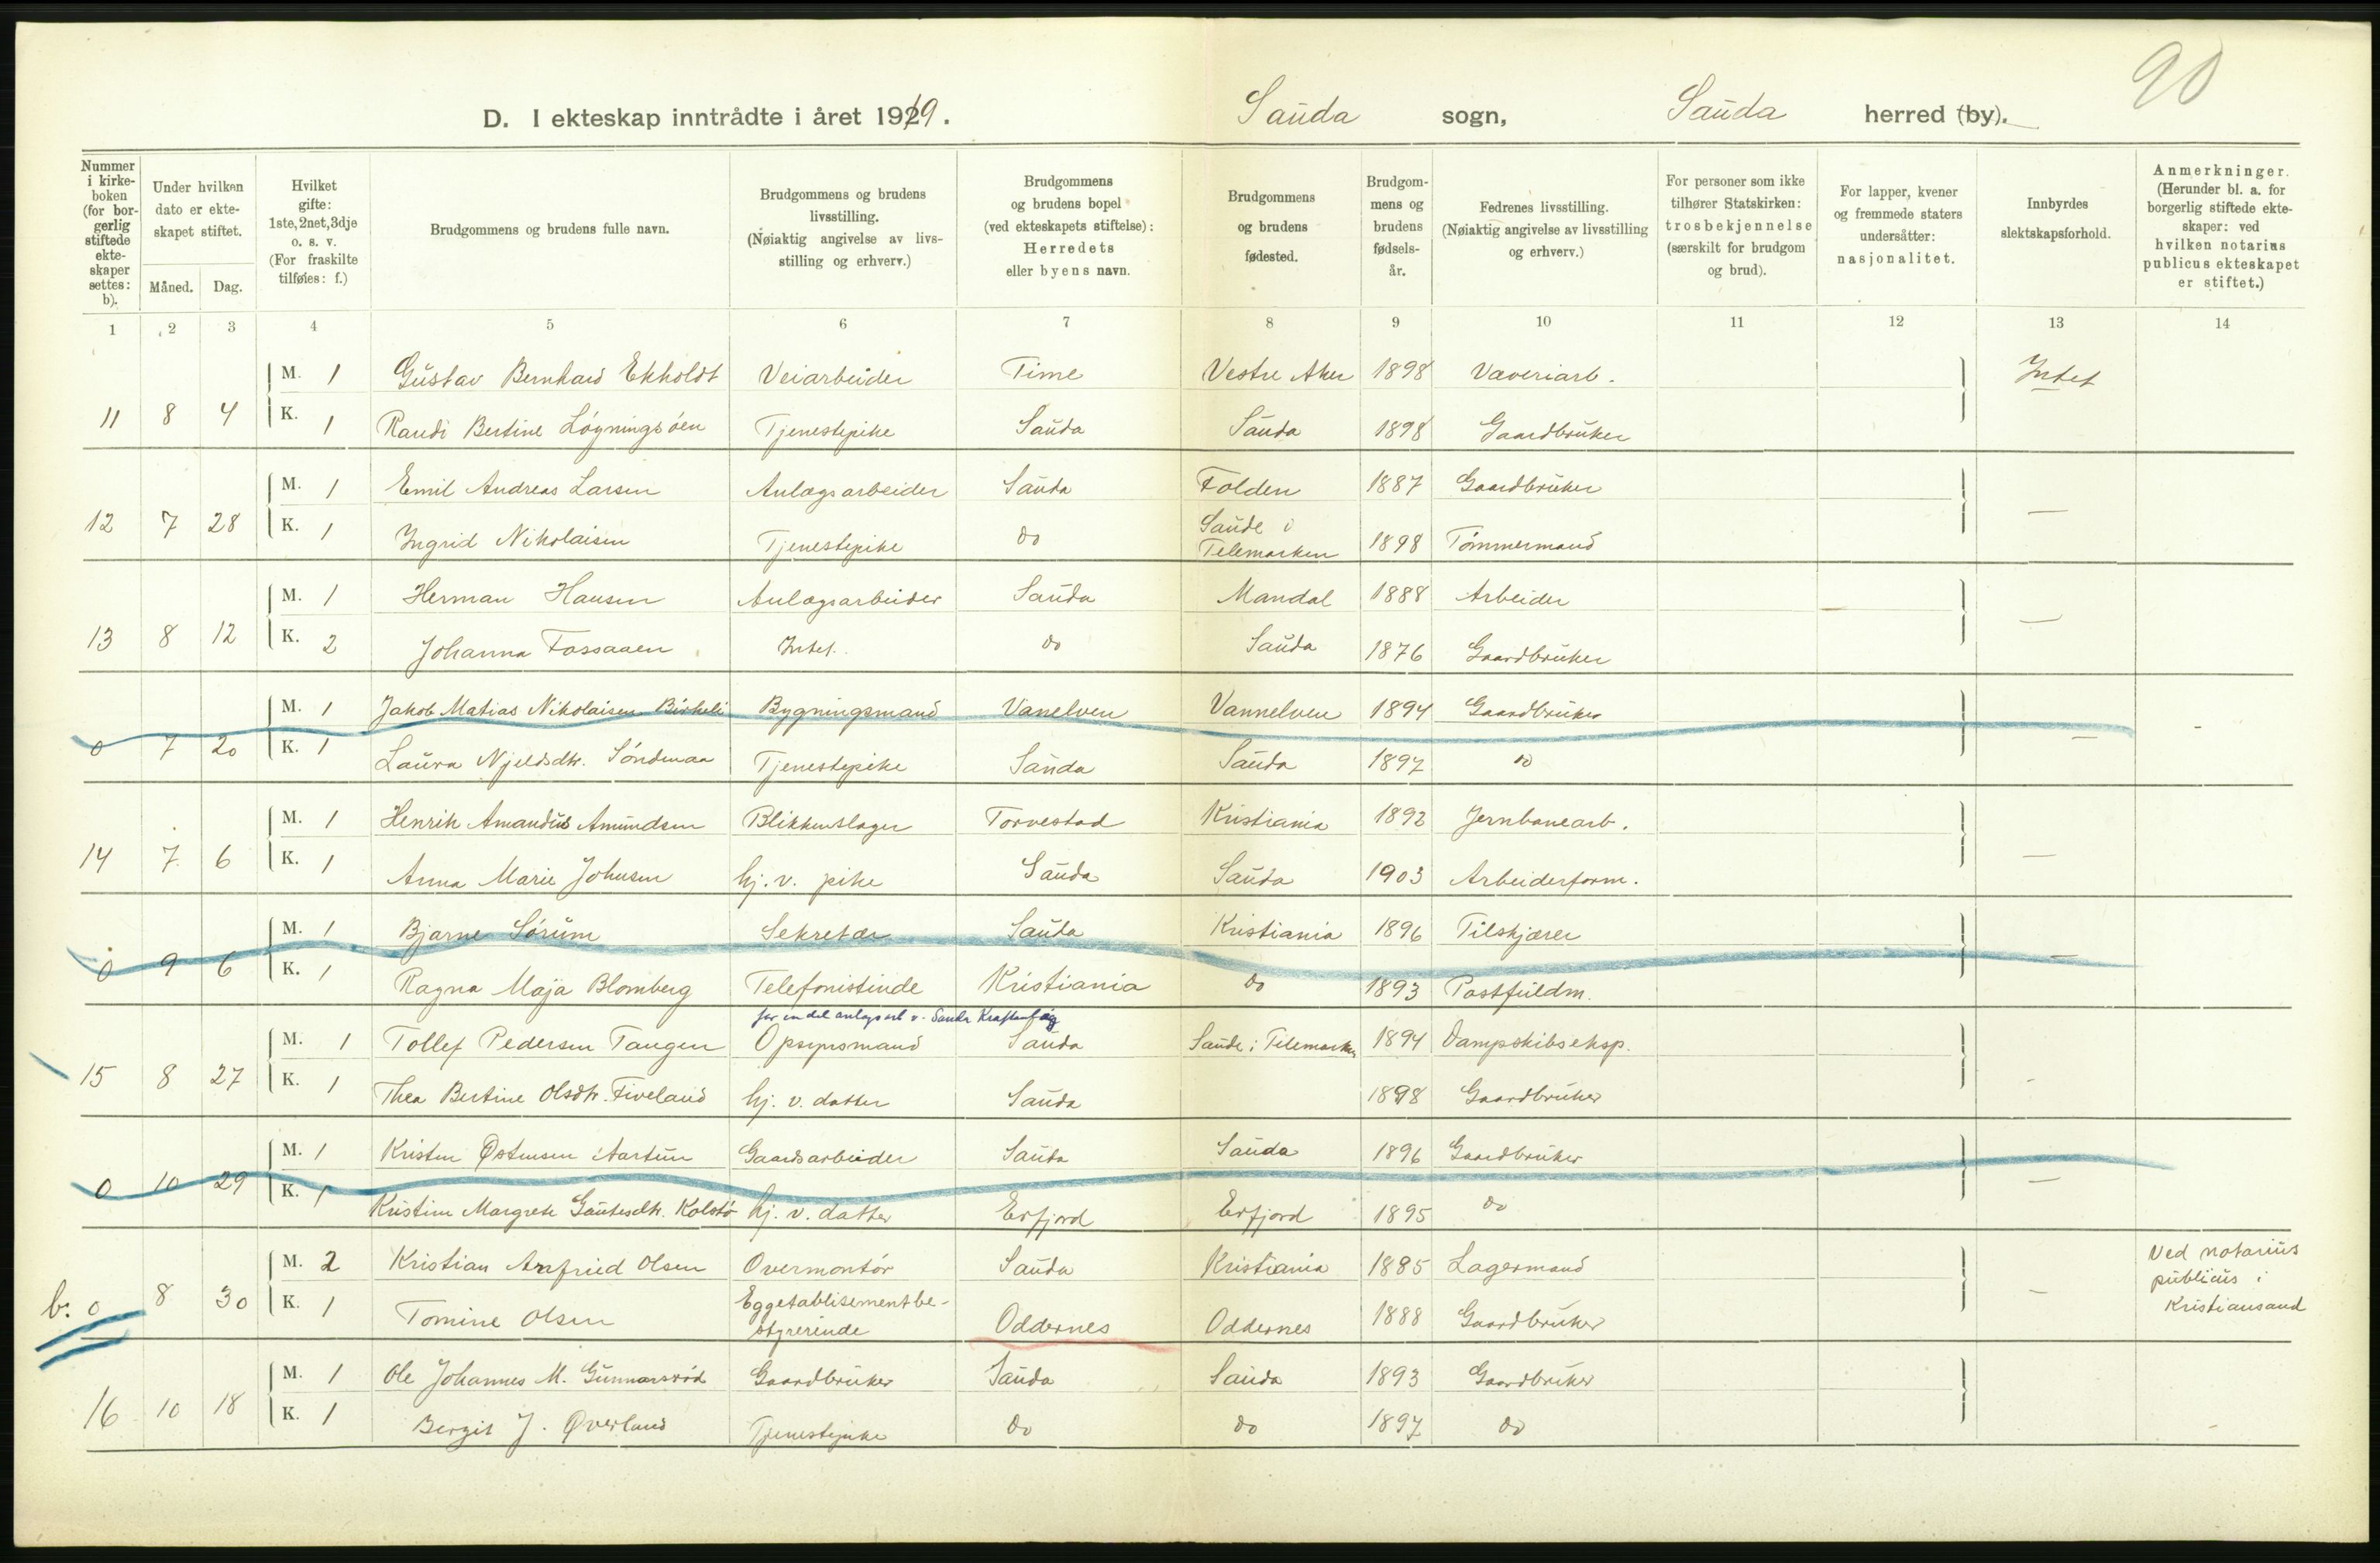 90
D. I ekteskap inntrådte i året 1919. Sauda sogn, Sauda herred (by).
Nummer i kirke-boken (for bor-gerlig stiftede ekte-skaper settes: b).
Under hvilken dato er ekte-skapet stiftet.
Måned. Dag.
Hvilket gifte: 1ste, 2net, 3dje o. s. v. (For fraskilte tilføies: f.)
Brudgommens og brudens fulle navn.
Brudgommens og brudens livsstilling. (Nøiaktig angivelse av livs-stilling og erhverv.)
Brudgommens og brudens bopel (ved ekteskapets stiftelse): Herredets eller byens navn.
Brudgommens og brudens fødested.
Brudgom-mens og brudens fødsels-år.
Fedrenes livsstilling. (Nøiaktig angivelse av livsstilling og erhverv.)
For personer som ikke tilhører Statskirken: trosbekjennelse (særskilt for brudgom og brud).
For lapper, kvener og fremmede staters undersåtter: nasjonalitet.
Innbyrdes slektskapsforhold.
Anmerkninger. (Herunder bl. a. for borgerlig stiftede ekte-skaper: ved hvilken notarius publicus ekteskapet er stiftet.)
1 2 3 4 5 6 7 8 9 10 11 12 13 14
M. 1 Gustav Bernhard Ekholdt Veiarbeider Time Vestre Aker 1898 Væveriarb. Intet
11 8 4 K. 1 Randi Bertine Løgningsøen Tjenestepike Sauda Sauda 1898 Gaardbruker
M. 1 Emil Andreas Larsen Anlægsarbeider Sauda Folden 1887 Gaardbruker
12 7 28 K. 1 Ingrid Nikolaisen Tjenestepike do Saude i Telemarken 1898 Tømmermand —
M. 1 Herman Hansen Anlægsarbeider Sauda Mandal 1888 Arbeider
13 8 12 K. 2 Johanna Fossaaen Intet. do Sauda 1876 Gaardbruker —
M. 1 Jakob Matias Nikolaisen Birkeli Bygningsmand Vanelven Vannelven 1894 Gaardbruker
0 7 20 K. 1 Laura Njeldsdtr. Søndenaa Tjenestepike Sauda Sauda 1897 do —
M. 1 Henrik Amandus Amundsen Blikkenslager Torvestad Kristiania 1892 Jernbanearb.
14 7 6 K. 1 Anna Marie Johnsen hj. v. pike Sauda Sauda 1903 Arbeiderform. —
M. 1 Bjarne Sørum Sekretær Sauda Kristiania 1896 Tilskjærer
0 9 6 K. 1 Ragna Maja Blomberg Telefonistinde Kristiania do 1893 Postfuldm. —
for en del anlægsarb v. Sauda
M. 1 Tollef Pedersen Tangen Opsynsmand Sauda Saude i Telemarken 1894 Dampskibseksp.
15 8 27 K. 1 Thea Bertine Olsdtr. Fiveland hj. v. datter Sauda 1898 Gaardbruker -
M. 1 Kristen Østensen Aartun Gaardsarbeider Sauda Sauda 1896 Gaardbruker
0 10 29 K. 1 Kristine Margrete Gautesdtr. Kolstø hj. v. datter Erfjord Erfjord 1895 do —
M. 2 Kristian Arnfried Olsen Overmontør Sauda Kristiania 1885 Lagermand Ved notarius publicus i Kristiansand
b: 0 8 30 K. 1 Tomine Olsen Eggetablisementbe-styrerinde Oddernes Oddernes 1888 Gaardbruker -
M. 1 Ole Johannes M. Gunnarsrød Gaardbruker Sauda Sauda 1893 Gaardbruker
16 10 18 K. 1 Bergit J. Øverland Tjenestepike do do 1897 do -